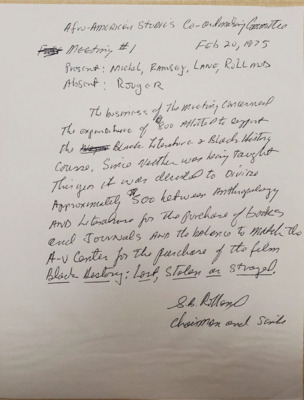 Afro-American Studies Co-ordinating Committee
Meeting #1 Feb 20, 1975
Present: Michel, Ramsey, Lane, Rilland
Absent: Rouger
The business of the meeting concerned
the expenditure of $800 allotted to support
the Black Literature & Black History
Course. Since neither was being taught
this yr it was decided to divide
approximately $500 between Anthropology
and Literature for the purchase of books
and Journals and the balance to match the
A-V Center for the purchase of the film
Black History: Lost, Stolen or Strayed.
Chairman and Scribe